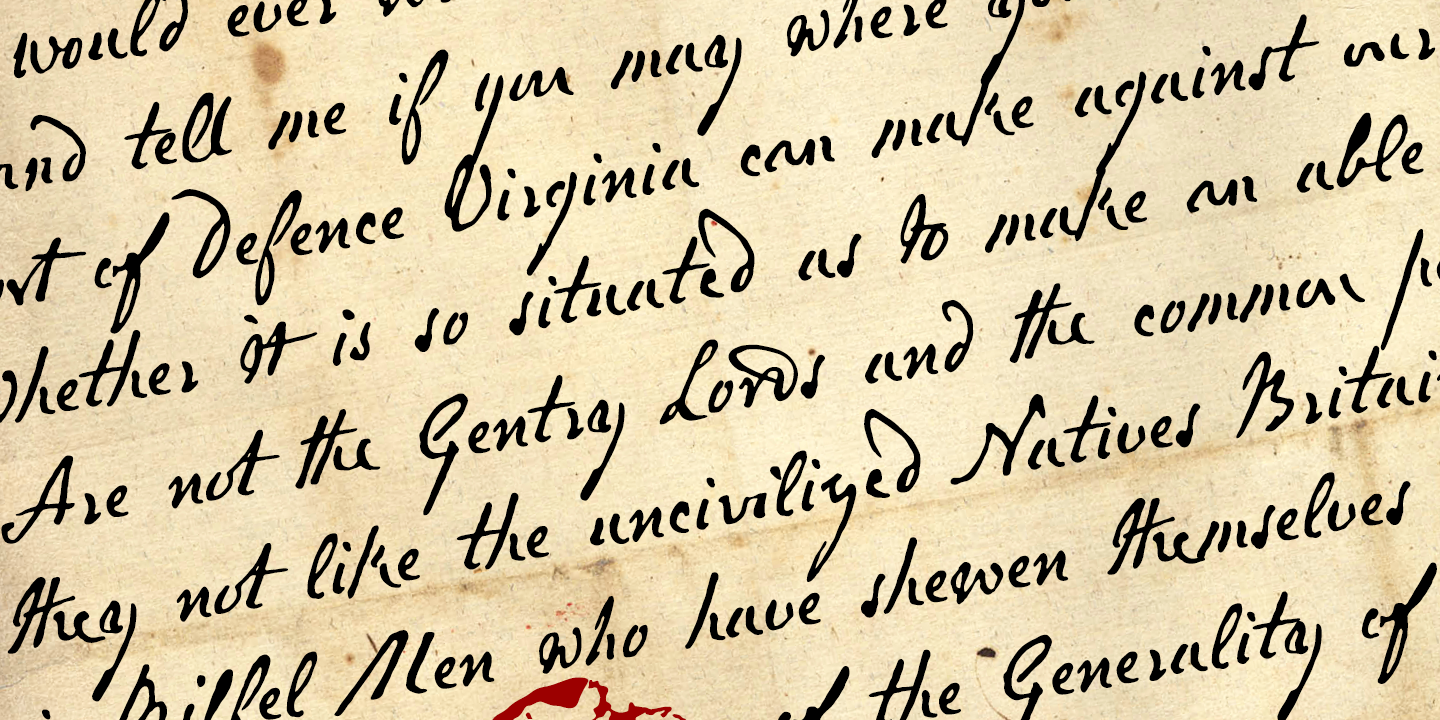 would ever
and tell me if you may where you
of Defence Virginia can make against our
whether it is so situated as to make an able
Are not the Gentry Lords and the common
they not like the uncivilized Natives Britain
Men who have shewen themselves
of the Generality of